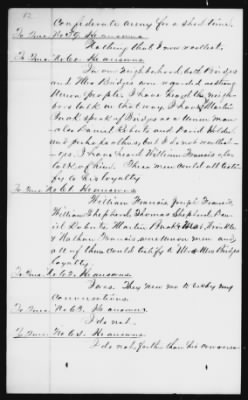 12
Confederate army for a short time.
To Ques. No. 59 He answers
Nothing that I now recollect.
To Ques. No. 60 He answers
In our neighborhood both Bridges
and Mrs Bridges were regarded as strong
Union people. I have heard the neigh-
bors talk in that way. I have heard Martin
Bush speak of Bridges as a Union man
also Daniel Roberts and David Holder
and perhaps others, but I do not recollect
I have heard William Francis also
talk of him. These men could all testi-
fy to his loyalty.
To Ques. No. 61 He answers
William Francis Joseph Francis
William Shepherd Thomas Shepherd Dani-
el Roberts Martin Bush
& Nathan Francis, were union men and
all of them could testify to Mr & Mrs Bridges
loyalty.
To Ques. No. 62, He answers
I was. They knew me to be by my
Conversations.
To Ques. No. 63. He answers
I do not.
To Ques. No. 65. He answers
I do not further than his conversa-